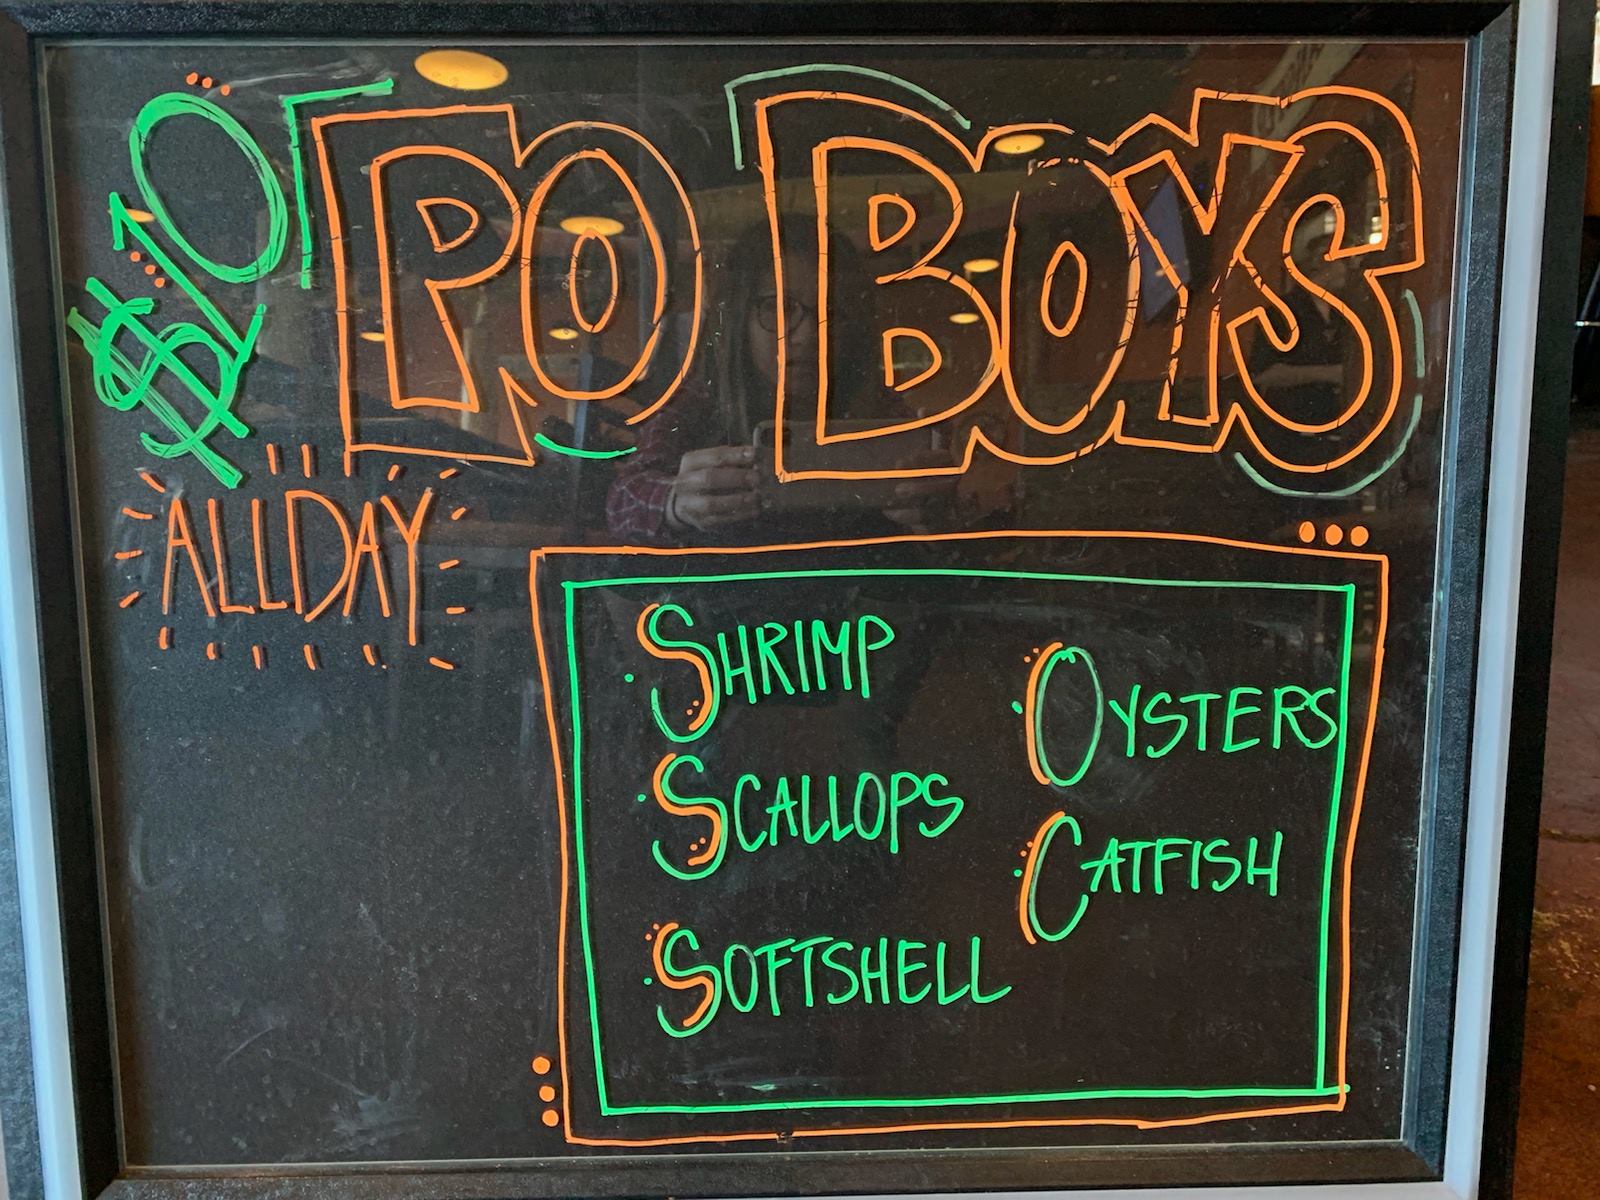 $10
PO BOYS
ALL DAY
SHRIMP
SCALLOPS
SOFTSHELL
OYSTERS
CATFISH